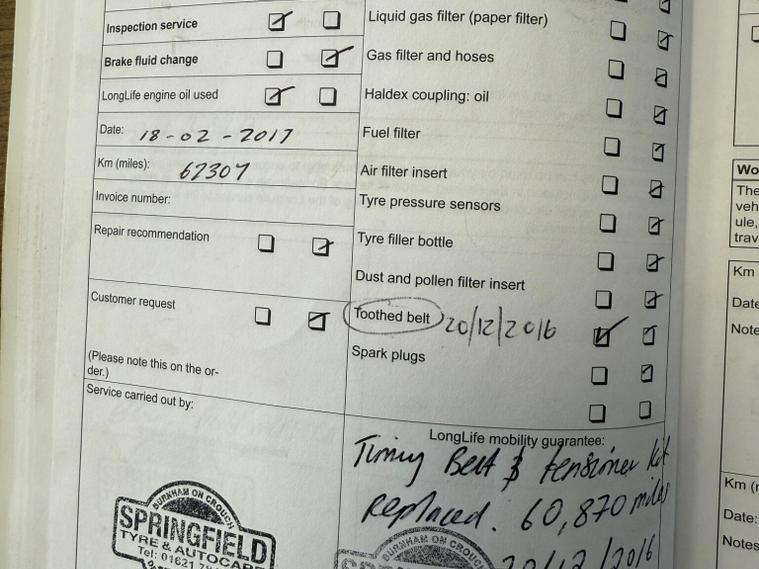 Inspection service
Brake fluid change
LongLife engine oil used
Date: 18-02-2017
Km (miles): 67307
Invoice number:
Repair recommendation
Customer request
(Please note this on the or-
der.)
Service carried out by:
BURNHAM ON CROUCH
SPRINGFIELD
TYRE & AUTOCARE
Tel: 01621
Liquid gas filter (paper filter)
Gas filter and hoses
Haldex coupling: oil
Fuel filter
Air filter insert
Tyre pressure sensors
Tyre filler bottle
Dust and pollen filter insert
Toothed belt 20/12/2016
Spark plugs
LongLife mobility guarantee:
Timing Belt & tensioner kit
replaced. 60,870 miles
20/12/2016
BURNHAM ON CROUCH
Wo
The
veh
ule,
trav
Km
Date
Note
Km (r
Date:
Notes